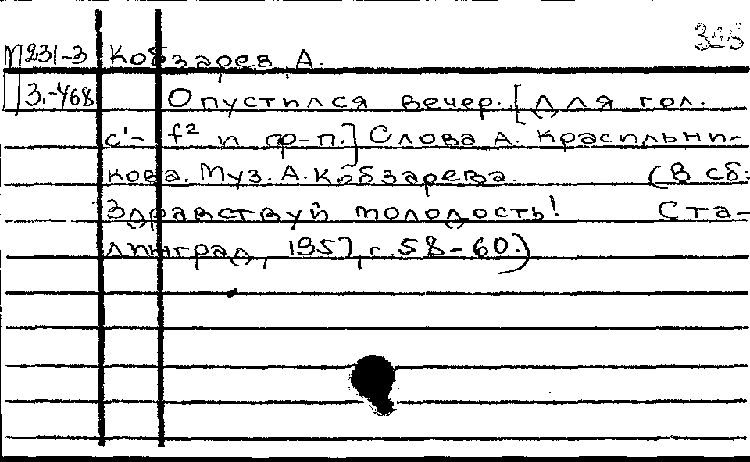 315
М231-3 Кобзарев, А.
З.-468 Опустился вечер. [Для гол.
c¹- f² и ф-п.] Слова А. Красильни-
кова. Муз. А. Кобзарева. (В сб:
Здравствуй молодость! Ста-
линград, 1957, с. 58-60.)